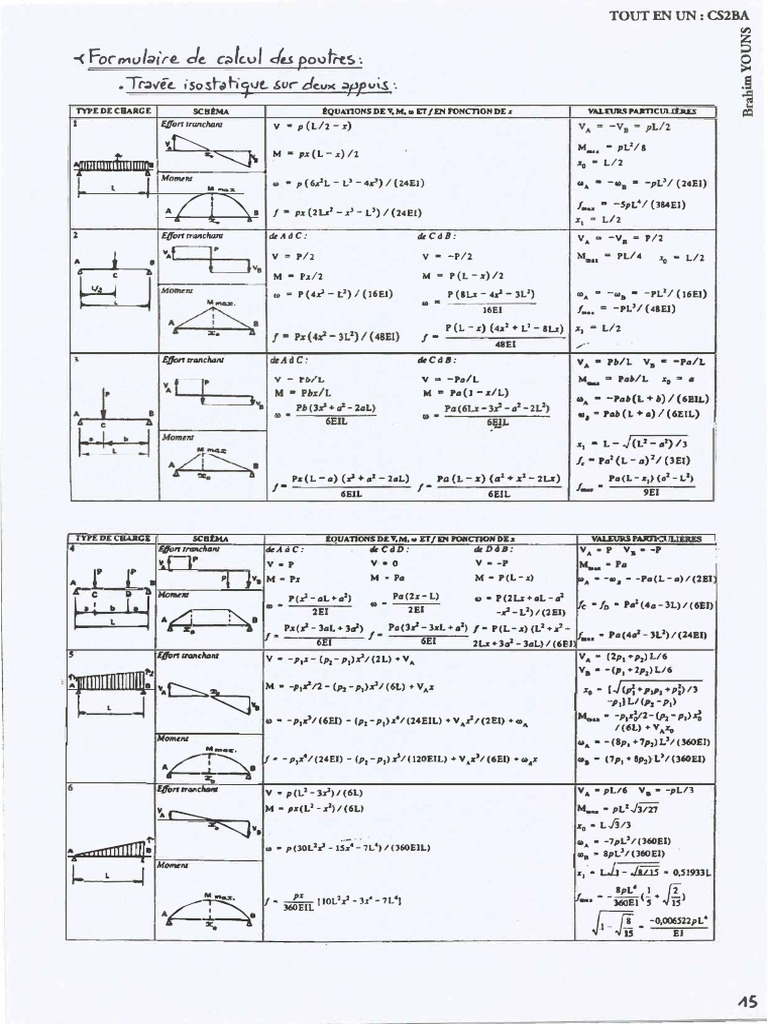 TOUT EN UN : CS2BA
Brahim YOUNS
Formulaire de calcul des poutres :
. Travée isostatique sur deux appuis :
TYPE DE CHARGE SCHÉMA ÉQUATIONS DE V, M, ω ET f EN FONCTION DE x VALEURS PARTICULIÈRES
1
Effort tranchant
Moment
M max
A B
L
V = p (L/2 - x)
M = px (L - x) / 2
ω = p (6x²L - L³ - 4x³) / (24EI)
f = px (2Lx² - x³ - L³) / (24EI)
V_A = -V_B = pL/2
M_max = pL²/8
x₀ = L/2
ω_A = -ω_B = -pL³/ (24EI)
f_max = -5pL⁴/ (384EI)
x₁ = L/2
2
Effort tranchant
Moment
M max.
A C B
L/2
L
de A à C : de C à B :
V = P/2 V = -P/2
M = Px/2 M = P (L - x) /2
ω = P (4x² - L²) / (16EI) ω = P (8Lx - 4x² - 3L²) / 16EI
f = Px (4x² - 3L²) / (48EI) f = P (L - x) (4x² + L² - 8Lx) / 48EI
V_A = -V_B = P/2
M_max = PL/4 x₀ = L/2
ω_A = -ω_B = -PL²/ (16EI)
f_max = -PL³/ (48EI)
x₁ = L/2
3
Effort tranchant
Moment
M max
A C B
a b
L
de A à C : de C à B :
V = Pb/L V = -Pa/L
M = Pbx/L M = Pa (1 - x/L)
ω = Pb (3x² + a² - 2aL) / 6EIL ω = Pa (6Lx - 3x² - a² - 2L²) / 6EIL
f = Px (L - a) (x² + a² - 2aL) / 6EIL f = Pa (L - x) (a² + x² - 2Lx) / 6EIL
V_A = Pb/L V_B = -Pa/L
M_max = Pab/L x₀ = a
ω_A = -Pab (L + b) / (6EIL)
ω_B = Pab (L + a) / (6EIL)
x₁ = L - √(L² - a²) /3
f_c = Pa² (L - a)²/ (3EI)
f_max = Pa (L - x₁) (a² - L²) / 9EI
TYPE DE CHARGE SCHÉMA ÉQUATIONS DE V, M, ω ET f EN FONCTION DE x VALEURS PARTICULIÈRES
4
Effort tranchant
Moment
P P
A C D B
a b a
L
de A à C : de C à D : de D à B :
V = P V = 0 V = -P
M = Px M = Pa M = P (L - x)
ω = P (x² - aL + a²) / 2EI ω = Pa (2x - L) / 2EI ω = P (2Lx + aL - a² -x² - L²) / (2EI)
f = Px (x² - 3aL + 3a²) / 6EI f = Pa (3x² - 3xL + a²) / 6EI f = P (L - x) (L² + x² - 2Lx + 3a² - 3aL) / (6EI)
V_A = P V_B = -P
M_max = Pa
ω_A = -ω_B = -Pa (L - a) / (2EI)
f_C = f_D = Pa² (4a - 3L) / (6EI)
f_max = Pa (4a² - 3L²) / (24EI)
5
Effort tranchant
Moment
M max.
A B
L
V = -p₁x - (p₂ - p₁)x²/ (2L) + V_A
M = -p₁x²/2 - (p₂ - p₁)x³/ (6L) + V_Ax
ω = -p₁x³/ (6EI) - (p₂ - p₁) x⁴/ (24EIL) + V_Ax²/ (2EI) + ω_A
f = - p₁x⁴/ (24EI) - (p₂ - p₁) x⁵/ (120EIL) + V_Ax³/ (6EI) + ω_Ax
V_A = (2p₁ + p₂) L/6
V_B = - (p₁ + 2p₂) L/6
x₀ = [√(p₁² + p₁p₂ + p₂²) /3
-p₁] L/ (p₂ - p₁)
M_max = -p₁x₀²/2 - (p₂ - p₁) x₀³
/ (6L) + V_Ax₀
ω_A = - (8p₁ + 7p₂) L³/ (360EI)
ω_B = (7p₁ + 8p₂) L³/ (360EI)
6
Effort tranchant
Moment
M max.
A B
L
V = p (L² - 3x²) / (6L)
M = px (L² - x²) / (6L)
ω = p (30L²x² - 15x⁴ - 7L⁴) / (360EIL)
f = px / 360EIL [10L²x² - 3x⁴ - 7L⁴]
V_A = pL/6 V_B = -pL/3
M_max = pL²√3/27
x₀ = L√3/3
ω_A = -7pL³/ (360EI)
ω_B = 8pL³/ (360EI)
x₁ = L√1 - √8/15 = 0,51933L
f_max = - 8pL⁴ / 360EI (1/5 + √2/15)
√1 - √8/15 = -0,006522pL⁴ / EI
15